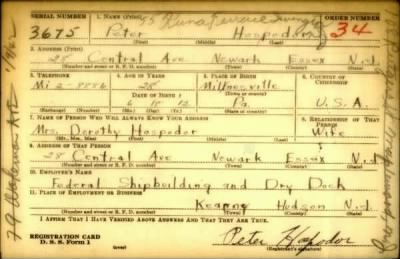 SERIAL NUMBER 1. NAME (Print) ORDER NUMBER
3675 Peter Haspodor 34
(First) (Middle) (Last)
2. ADDRESS (Print)
28 Central Ave Newark Essex N.J.
(Number and street or R. F. D. number) (Town) (County) (State)
3. TELEPHONE 4. AGE IN YEARS 5. PLACE OF BIRTH 6. COUNTRY OF CITIZENSHIP
Mi 2-8886 28 Milnesville
DATE OF BIRTH (Town or county)
6 18 12 Pa. U.S.A.
(Exchange) (Number) (Mo.) (Day) (Yr.) (State or country)
7. NAME OF PERSON WHO WILL ALWAYS KNOW YOUR ADDRESS 8. RELATIONSHIP OF THAT PERSON
Mrs. Dorothy Haspodor Wife
(Mr., Mrs., Miss) (First) (Middle) (Last)
9. ADDRESS OF THAT PERSON
28 Central Ave Newark Essex N.J
(Number and street or R. F. D. number) (Town) (County) (State)
10. EMPLOYER'S NAME
Federal Shipbuilding and Dry Dock
11. PLACE OF EMPLOYMENT OR BUSINESS
Kearny Hudson N.J.
(Number and street or R. F. D. number) (Town) (County) (State)
I AFFIRM THAT I HAVE VERIFIED ABOVE ANSWERS AND THAT THEY ARE TRUE.
REGISTRATION CARD
D. S. S. Form 1
Peter Haspodor
(Registrant's signature)